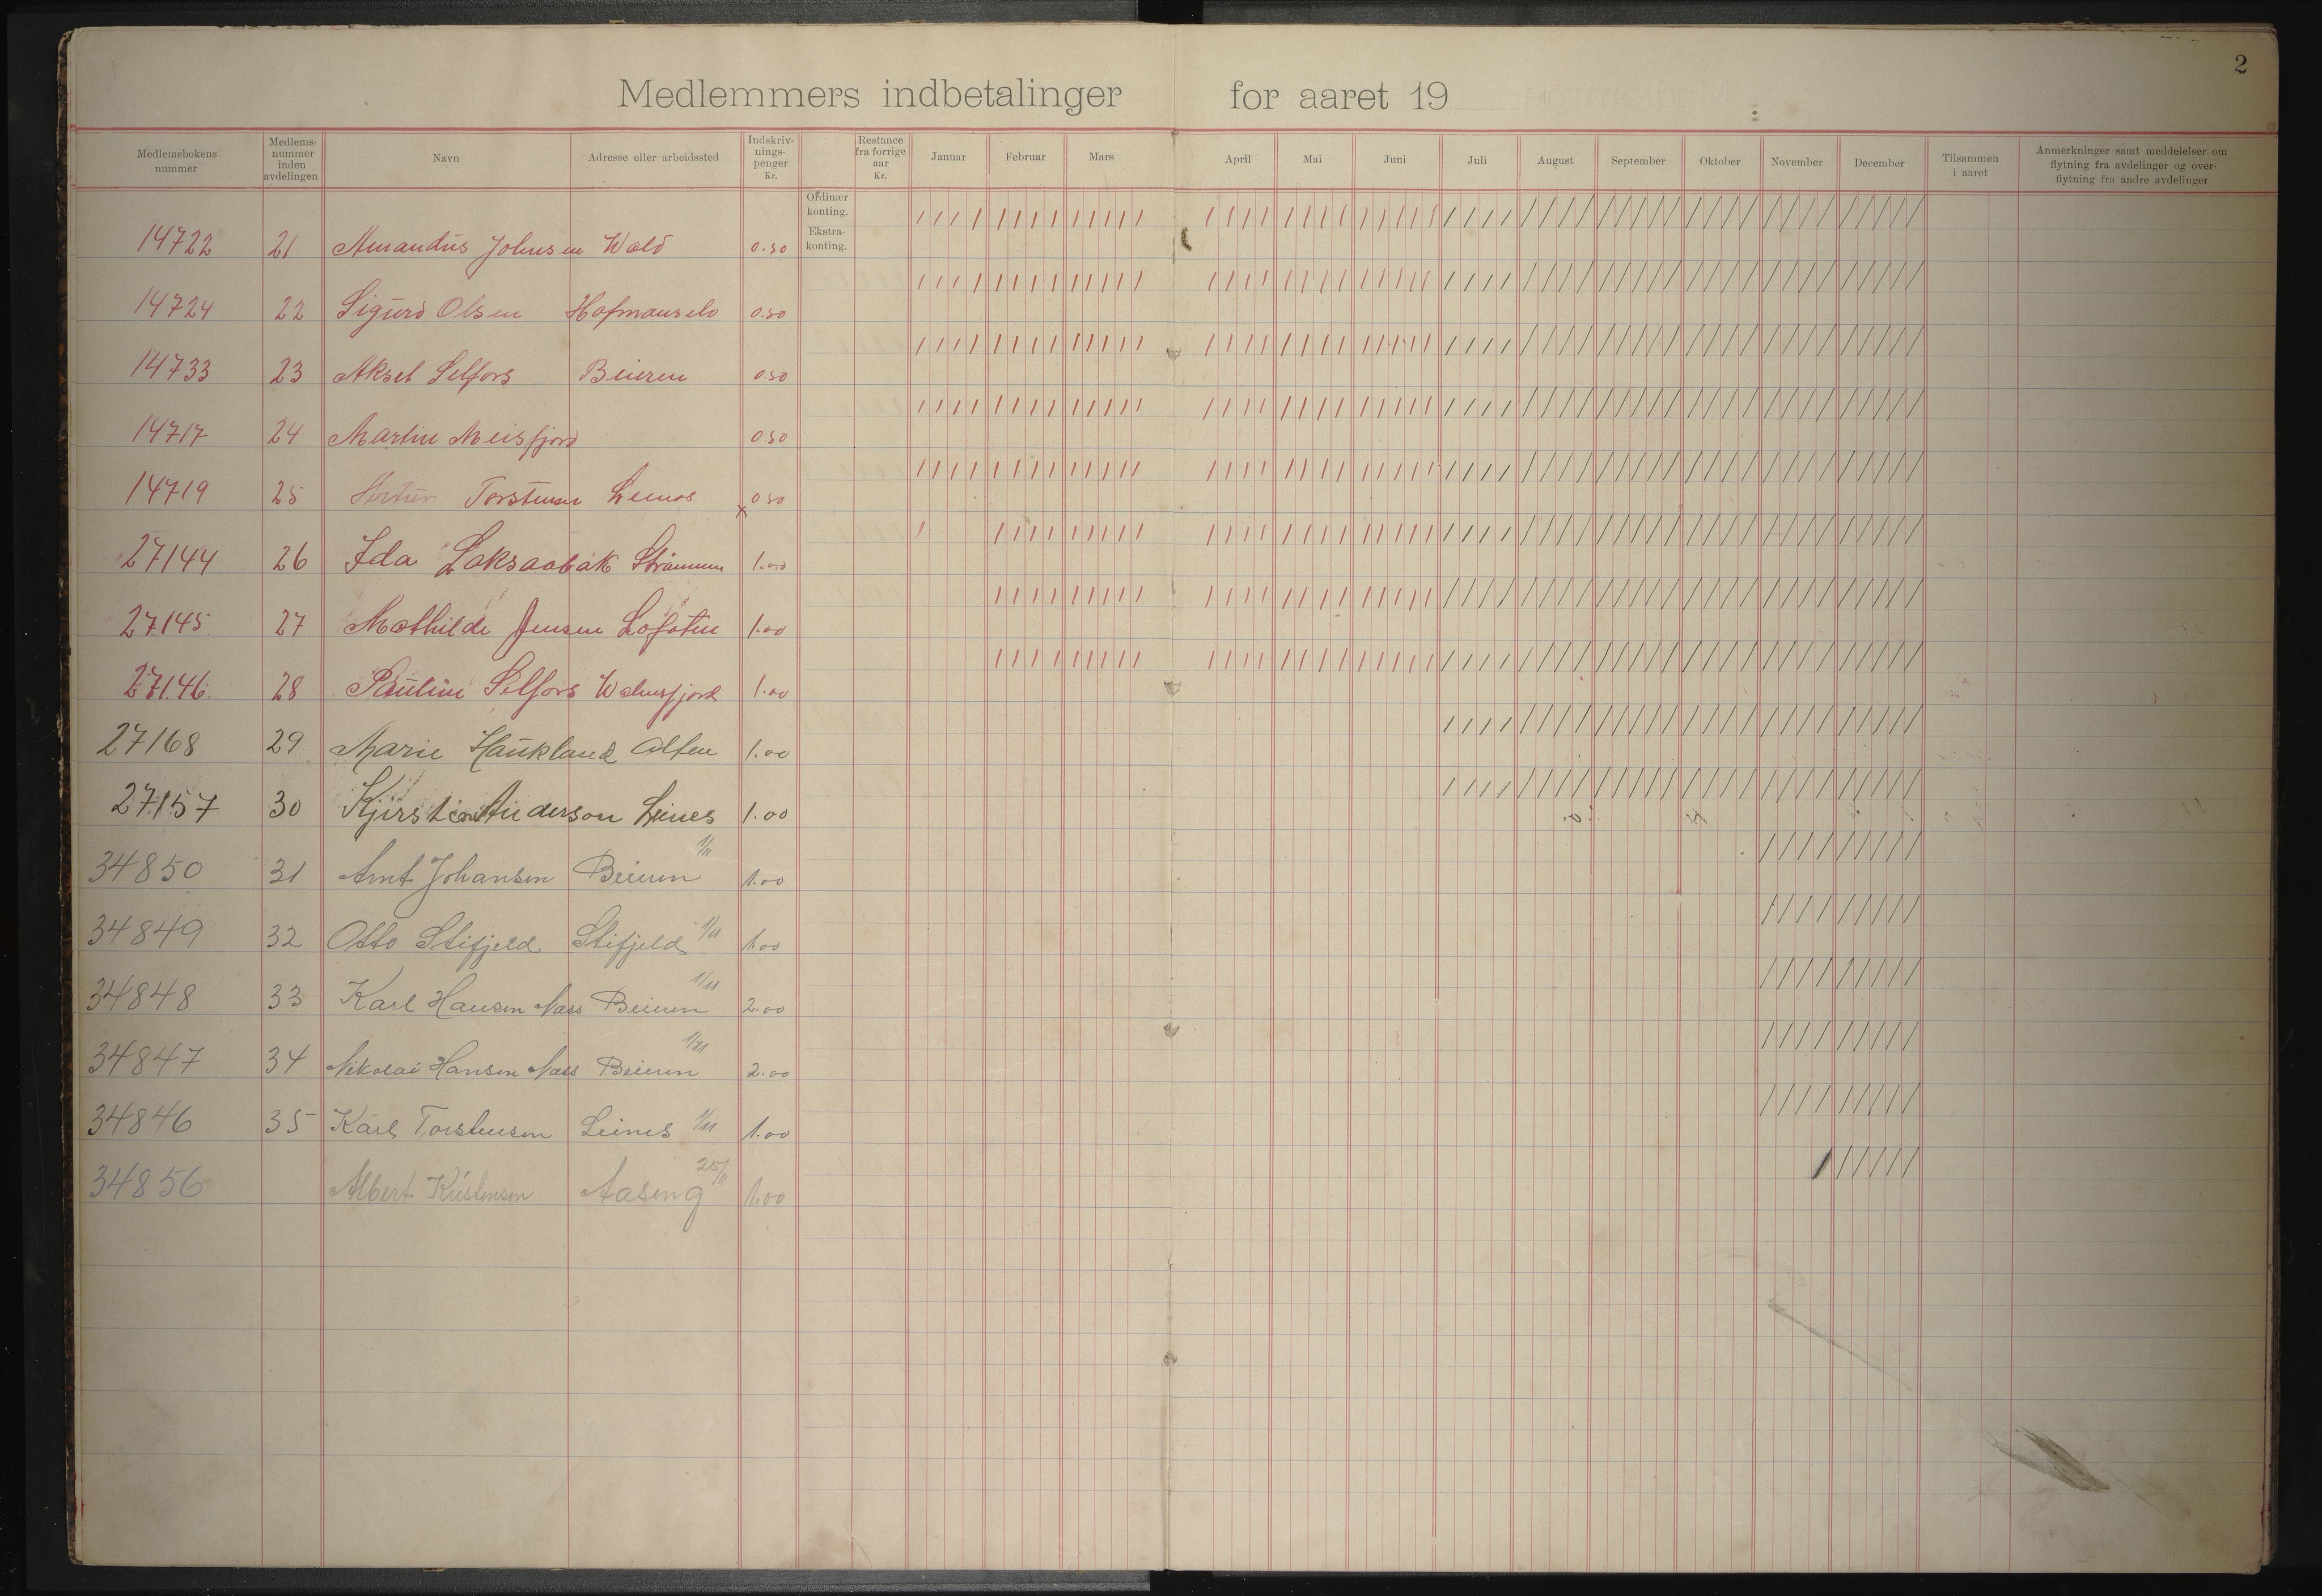 2
Medlemmers indbetalinger for aaret 19
Medlemsbokens nummer
Medlems-nummer inden avdelingen
Navn
Adresse eller arbeidssted
Indskriv-nings-penger Kr.
Restance fra forrige aar Kr.
Januar Februar Mars April Mai Juni Juli August September Oktober November December
Tilsammen i aaret
Anmerkninger samt meddelelser om flytning fra avdelinger og over-flytning fra andre avdelinger
Ordinær konting.
Ekstra-konting.
14722 21 Amandus Johnsen Wold 0.50
14724 22 Sigurd Olsen 0.50
14733 23 Aksel Selfors Beieren 0.50
14717 24 Martin Meisfjord 0.50
14719 25 Torstensen 0 50
27144 26 Ida Laksaabak 1.00
27145 27 Mathilde Jensen Lofoten 1.00
27146. 28 Pauline Selfors 1.00
27168 29 Marie Haukland Alten 1.00
27157 30 Kjirstine Anderson Leines 1.00
34850 31 Arnt Johansen Beieren 1/11 1.00
34849 32 Otto Stifjeld Stifjeld 1/11 1.00
34848 33 Karl Hansen Næss Beieren 1/11 2.00
34847 34 Nikolai Hansen Næss Beieren 1/11 2.00
34846 35 Karl Torstensen Leines 1/11 1.00
34856 Albert Kristensen Aaseng 25/11 1.00